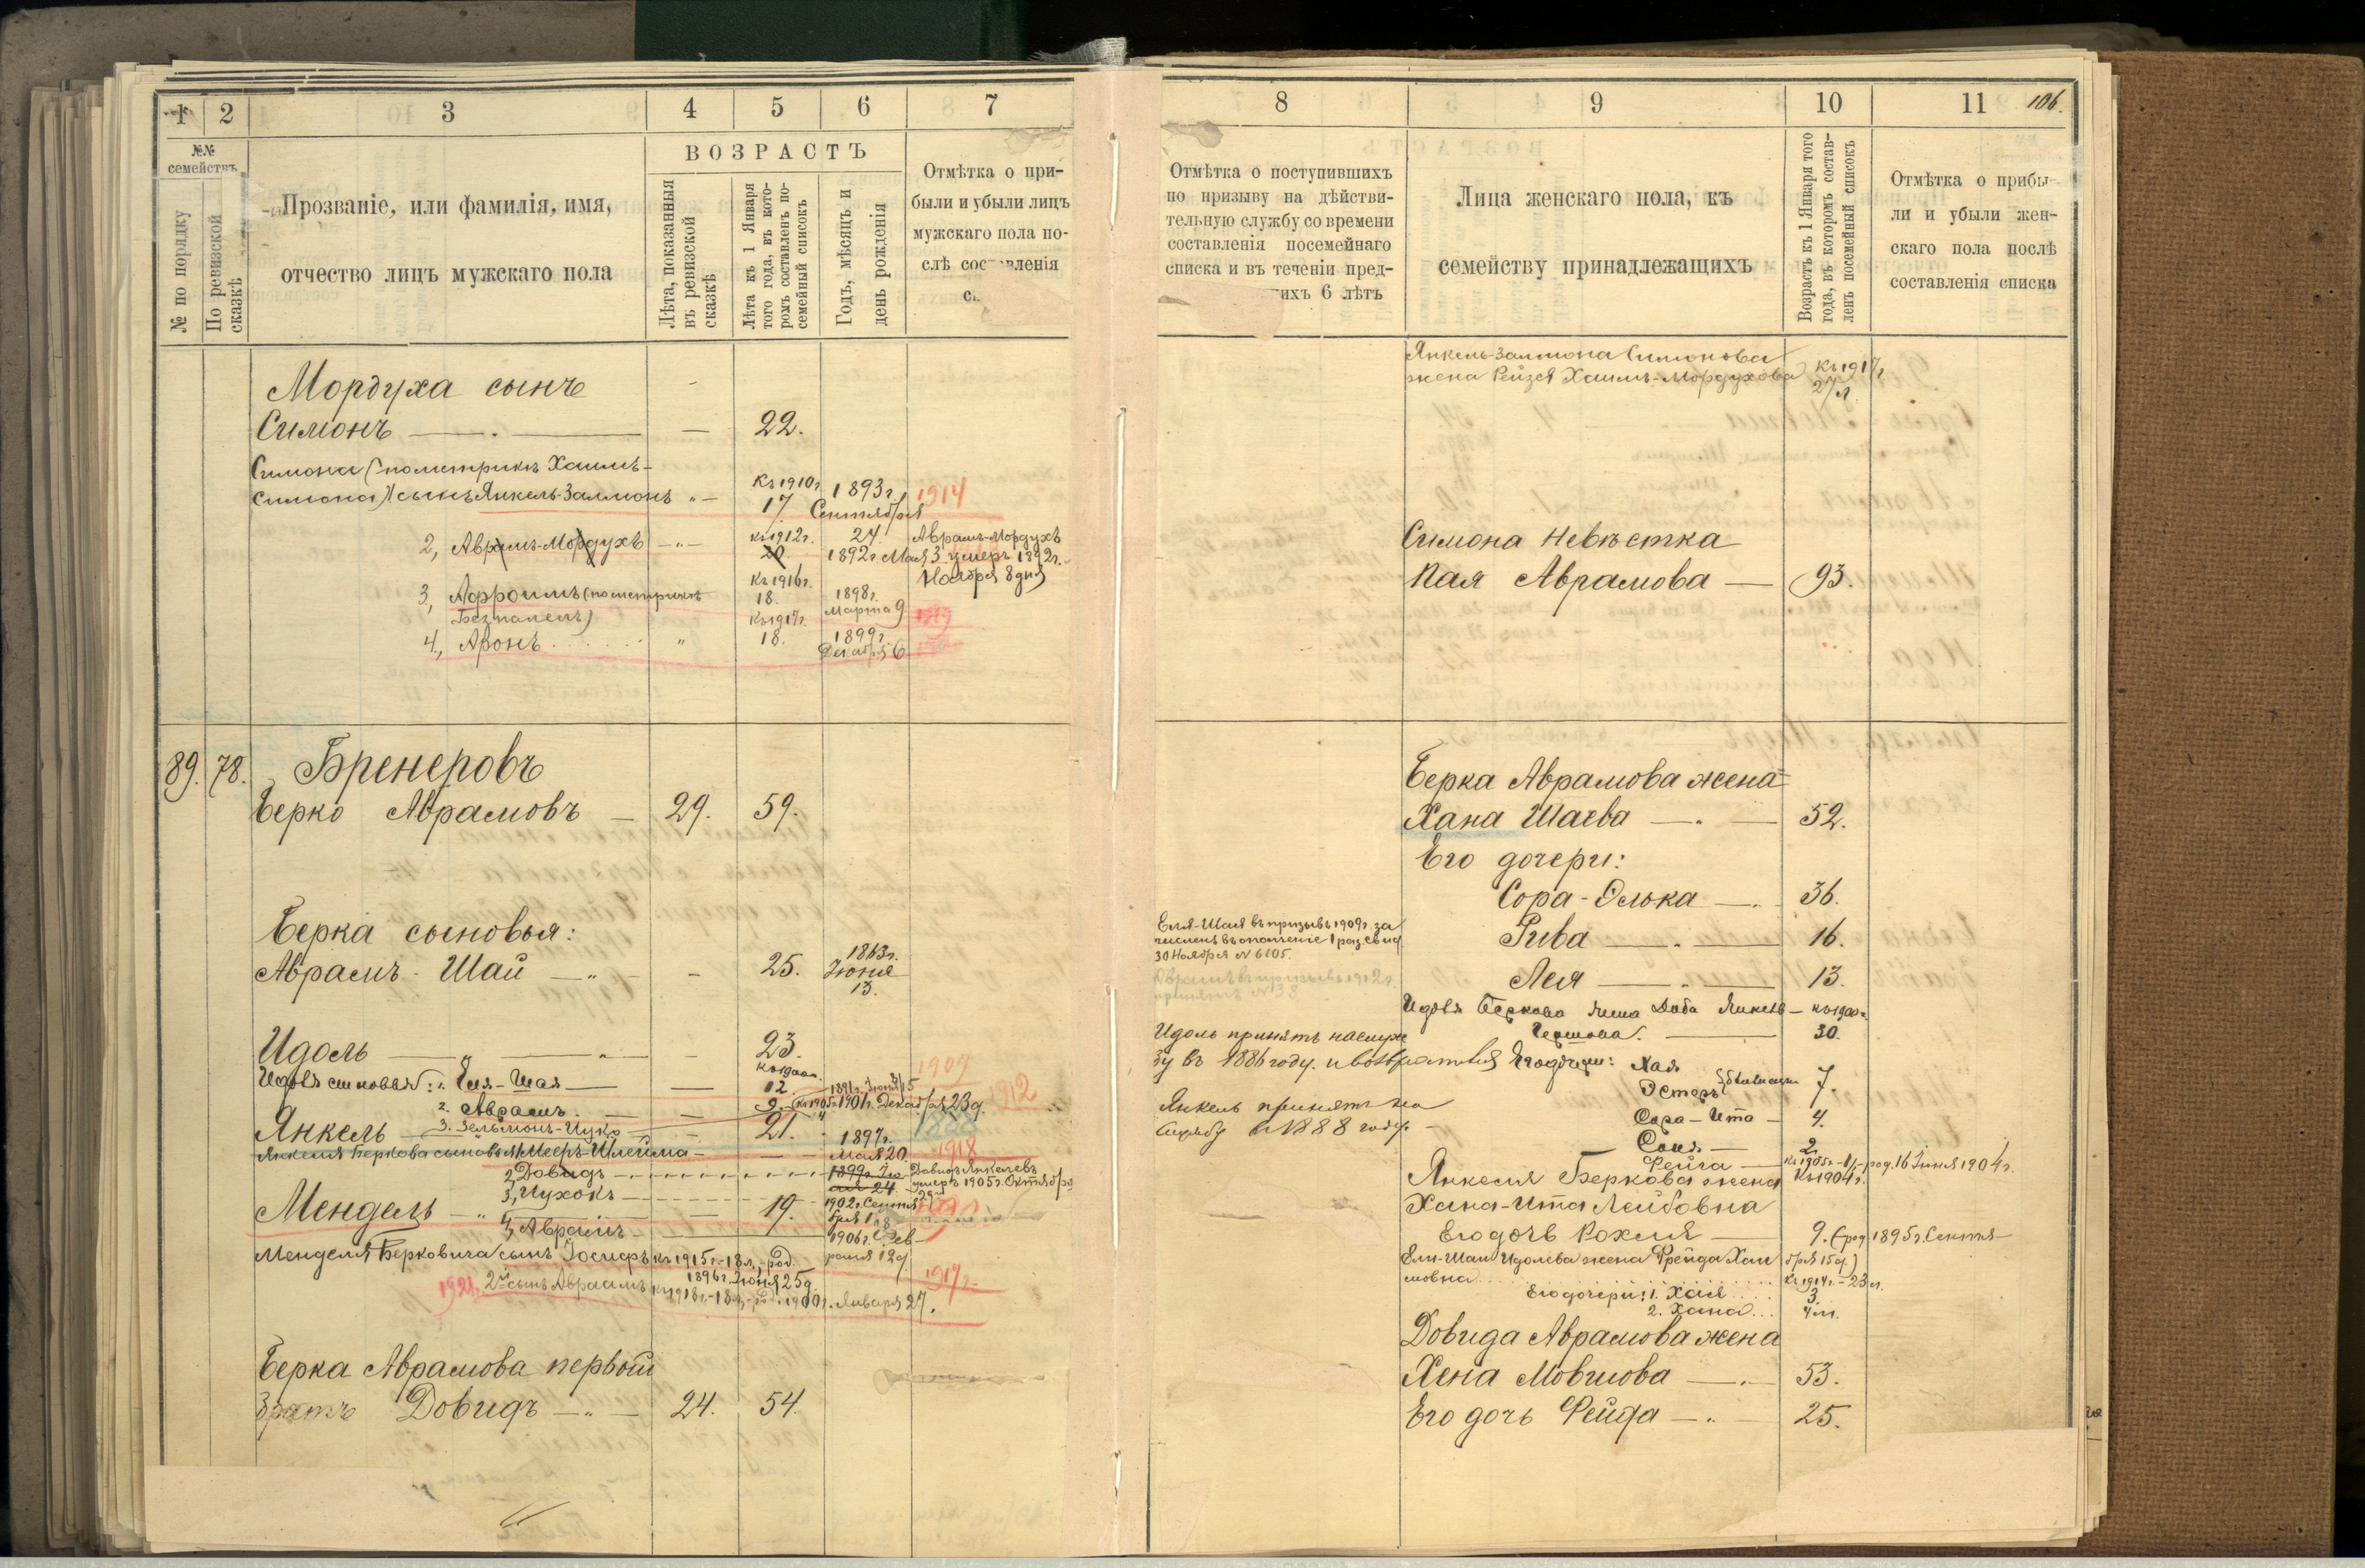 1 2 3 4 5 6 7
№№ семействъ
№ по порядку
По ревизской сказкѣ
Прозваніе, или фамилія, имя,
отчество лицъ мужскаго пола
ВОЗРАСТЪ
Лѣта, показанныя въ ревизской сказкѣ
Лѣта къ 1 Января того года, въ которомъ составленъ посемейный списокъ
Годъ, мѣсяцъ и день рожденія
Отмѣтка о при-
были и убыли лицъ
мужскаго пола по-
слѣ составленія
Мордуха сынъ
Симонъ — 22.
Симона (по метрикѣ Хаимъ-
Симона) сынъ Янкель-Залмонъ „ — Къ 1910 г. 17 1893 г. Сентября 24. 1914
2, Аврамъ-Мордухъ — Къ 1912 г. 20 1892 г. Мая 3 Аврамъ-Мордухъ умеръ 1892 г. Ноября 8 дня
3, Афроимъ (по метрикѣ Къ 1916 г. 18. 1898 г. Марта 9
4, Аронъ „ Къ 1917 г. 18. 1899 г. Декабря 6
89. 78. Бренеровъ
Берко Аврамовъ — 29. 59.
Берка сыновья:
Аврамъ-Шай — 25. 1863 г. Іюня 13.
Идоль — 23.
Идоля сыновья: 1. Еля-Шая — 12 1891 г. Іюня 15 1909
2. Аврамъ — 9. Къ 1905 г. 1901 г. Декабря 23 д. 1912
3. Зельмонъ-Ицко
Янкель — 21. 1888
Янкеля Беркова сыновья: Мееръ-Шлейма — 1897 г. Мая 20. 1918
2, Довидъ 1899 г. 24. Довидъ Янкелевъ умеръ 1905 г. Октября 29
3, Нухокъ 1902 г. Сентября 18
Мендель — 19.
4, Аврамъ 1906 г. Февраля 12 д.
Менделя Берковича сынъ Іосифъ къ 1915 г. - 18 л., род. 1896 г. Іюня 25 д. 1917 г.
1921 г. 2й сынъ Авраамъ къ 1918 г. - 18 л. - род. 1900 г. Января 27.
Берка Аврамова первый
братъ Довидъ — 24. 54.
8 9 10 11 106.
Отмѣтка о поступившихъ
по призыву на дѣйстви-
тельную службу со времени
составленія посемейнаго
списка и въ теченіи пред-
ихъ 6 лѣтъ
Лица женскаго пола, къ
семейству принадлежащихъ
Возрастъ къ 1 Января того года, въ которомъ составленъ посемейный списокъ
Отмѣтка о прибы-
ли и убыли жен-
скаго пола послѣ
составленія списка
Янкель-Залмона Симонова
жена Рейзя Хаимъ-Мордухова Къ 1917 г. 27 л.
Симона невѣстка
Кая Аврамова — 93.
Берка Аврамова жена
Хана Шаева — 52.
Его дочери:
Сора-Элька — 36.
Рива — 16.
Лея — 13.
Еля-Шая въ призывъ 1909 г. за
численъ въ ополченіе 1 раз. свид
30 Ноября № 6105.
Аврамъ въ призывъ 1912 г.
принятъ № 38
Идоля Беркова жена Доба Янкель-
Гершова. — 30.
Идоль принятъ на служ
бу въ 1886 году. и возвратился Его дочери: Хая
Эстеръ близнецы 7.
Янкель принятъ на
службу въ 1888 году.
Сора-Ита — 4.
Соня — 2
Фейга — Къ 1905 г. - 1/2 род. 16 Іюня 1904 г.
Янкеля Беркова жена Къ 1904 г.
Хана-Ита Лейбовна
Его дочь Рохля — 9. (род. 1895 г. Сентя-
бря 15 д.)
Ели-Шаи Идолева жена Фрейда Хаи
мовна Къ 1914 г. - 23 л.
Его дочери: 1. Хая 3.
2. Хана 4 м.
Довида Аврамова жена
Хена Мовшова — 53.
Его дочь Фейга — 25.